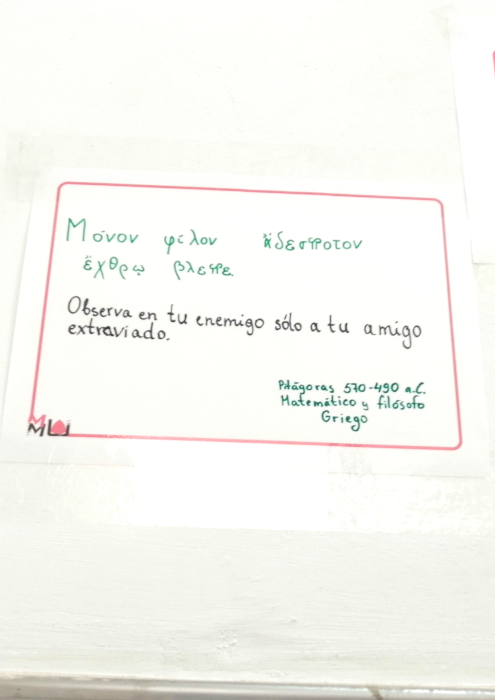 Μόνον φίλον ἄδεσποτον
ἔχθρῳ βλεπε.
Observa en tu enemigo sólo a tu amigo
extraviado.
Pitágoras 570-490 a.C.
Matemático y filósofo
Griego